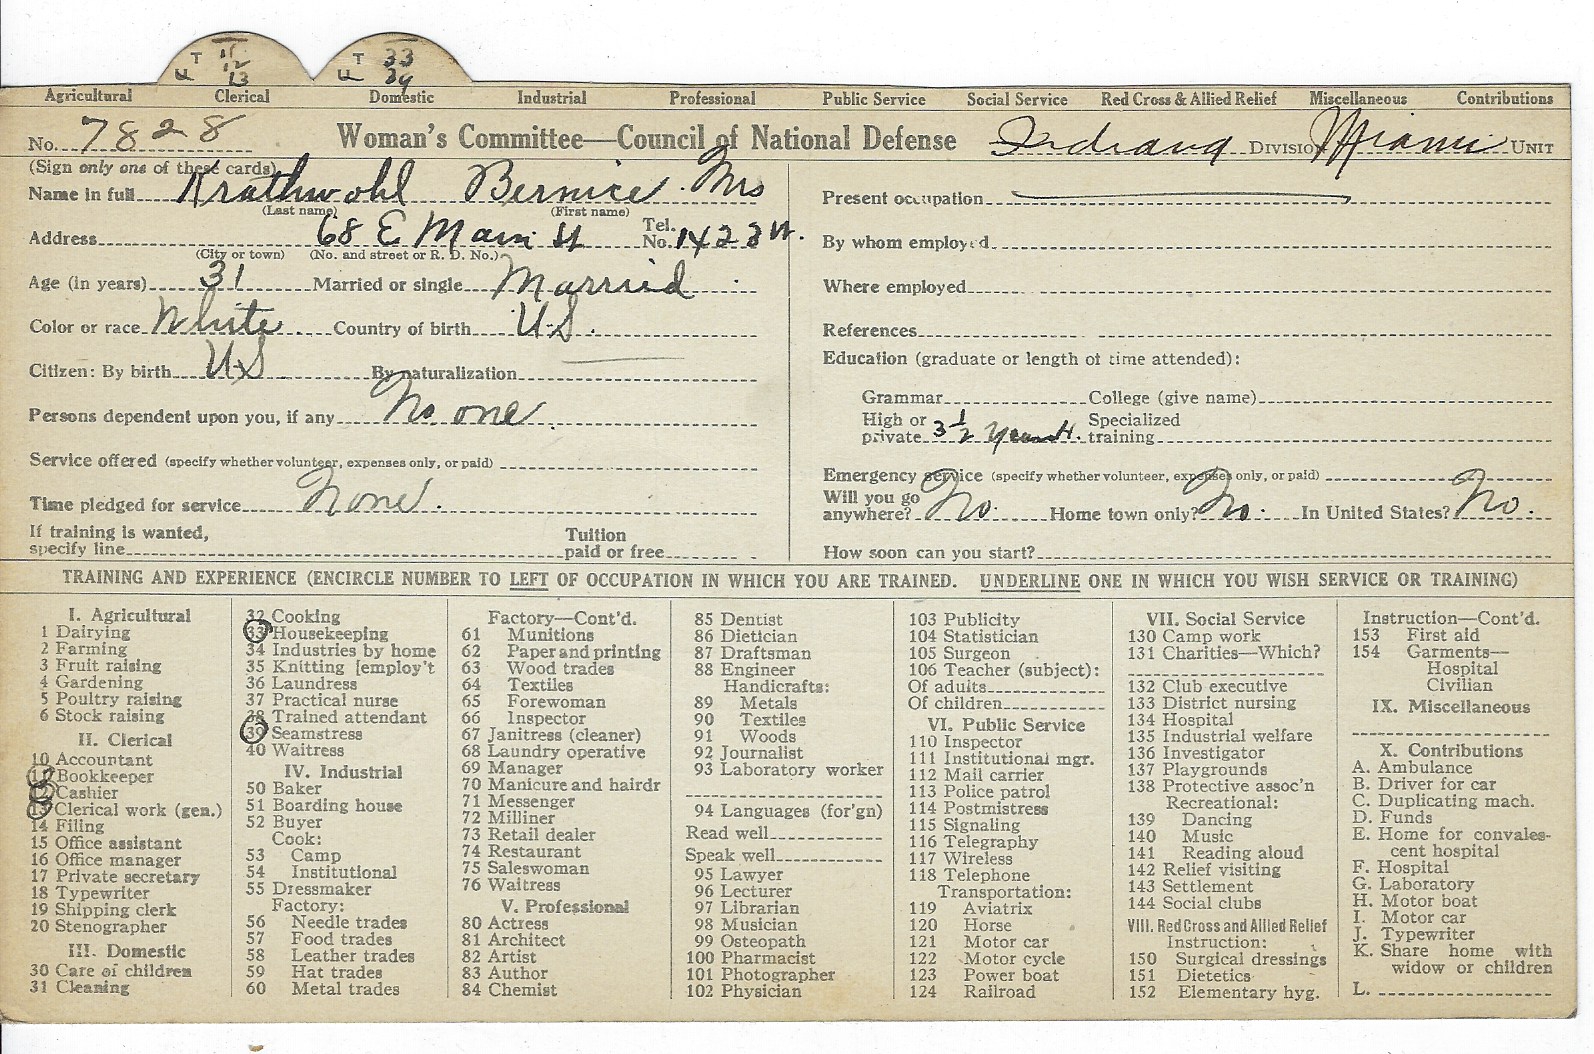 T 11 T 33
F 12 F 39
13
Agricultural Clerical Domestic Industrial Professional Public Service Social Service Red Cross & Allied Relief Miscellaneous Contributions
No. 7828 Woman's Committee—Council of National Defense Indiana DIVISION Miami UNIT
(Sign only one of these cards)
Name in full Krathwohl Bernice. Mrs
(Last name) (First name)
Address 68 E Main St Tel. No. 1423 W.
(City or town) (No. and street or R. D. No.)
Age (in years) 31 Married or single Married
Color or race White. Country of birth U.S.
Citizen: By birth U.S By naturalization
Persons dependent upon you, if any No one.
Service offered (specify whether volunteer, expenses only, or paid)
Time pledged for service None.
If training is wanted, specify line Tuition paid or free
Present occupation
By whom employed
Where employed
References
Education (graduate or length of time attended):
Grammar College (give name)
High or private 3 1/2 years. Specialized training
Emergency service (specify whether volunteer, expenses only, or paid)
Will you go anywhere? No. Home town only? No. In United States? No.
How soon can you start?
TRAINING AND EXPERIENCE (ENCIRCLE NUMBER TO LEFT OF OCCUPATION IN WHICH YOU ARE TRAINED. UNDERLINE ONE IN WHICH YOU WISH SERVICE OR TRAINING)
I. Agricultural
1 Dairying
2 Farming
3 Fruit raising
4 Gardening
5 Poultry raising
6 Stock raising
II. Clerical
10 Accountant
11 Bookkeeper
12 Cashier
13 Clerical work (gen.)
14 Filing
15 Office assistant
16 Office manager
17 Private secretary
18 Typewriter
19 Shipping clerk
20 Stenographer
III. Domestic
30 Care of children
31 Cleaning
32 Cooking
33 Housekeeping
34 Industries by home
35 Knitting [employ't
36 Laundress
37 Practical nurse
38 Trained attendant
39 Seamstress
40 Waitress
IV. Industrial
50 Baker
51 Boarding house
52 Buyer
Cook:
53 Camp
54 Institutional
55 Dressmaker
Factory:
56 Needle trades
57 Food trades
58 Leather trades
59 Hat trades
60 Metal trades
Factory—Cont'd.
61 Munitions
62 Paper and printing
63 Wood trades
64 Textiles
65 Forewoman
66 Inspector
67 Janitress (cleaner)
68 Laundry operative
69 Manager
70 Manicure and hairdr
71 Messenger
72 Milliner
73 Retail dealer
74 Restaurant
75 Saleswoman
76 Waitress
V. Professional
80 Actress
81 Architect
82 Artist
83 Author
84 Chemist
85 Dentist
86 Dietician
87 Draftsman
88 Engineer
Handicrafts:
89 Metals
90 Textiles
91 Woods
92 Journalist
93 Laboratory worker
94 Languages (for'gn)
Read well
Speak well
95 Lawyer
96 Lecturer
97 Librarian
98 Musician
99 Osteopath
100 Pharmacist
101 Photographer
102 Physician
103 Publicity
104 Statistician
105 Surgeon
106 Teacher (subject):
Of adults
Of children
VI. Public Service
110 Inspector
111 Institutional mgr.
112 Mail carrier
113 Police patrol
114 Postmistress
115 Signaling
116 Telegraphy
117 Wireless
118 Telephone
Transportation:
119 Aviatrix
120 Horse
121 Motor car
122 Motor cycle
123 Power boat
124 Railroad
VII. Social Service
130 Camp work
131 Charities—Which?
132 Club executive
133 District nursing
134 Hospital
135 Industrial welfare
136 Investigator
137 Playgrounds
138 Protective assoc'n
Recreational:
139 Dancing
140 Music
141 Reading aloud
142 Relief visiting
143 Settlement
144 Social clubs
VIII. Red Cross and Allied Relief
Instruction:
150 Surgical dressings
151 Dietetics
152 Elementary hyg.
Instruction—Cont'd.
153 First aid
154 Garments—
Hospital
Civilian
IX. Miscellaneous
X. Contributions
A. Ambulance
B. Driver for car
C. Duplicating mach.
D. Funds
E. Home for convales-
cent hospital
F. Hospital
G. Laboratory
H. Motor boat
I. Motor car
J. Typewriter
K. Share home with
widow or children
L.